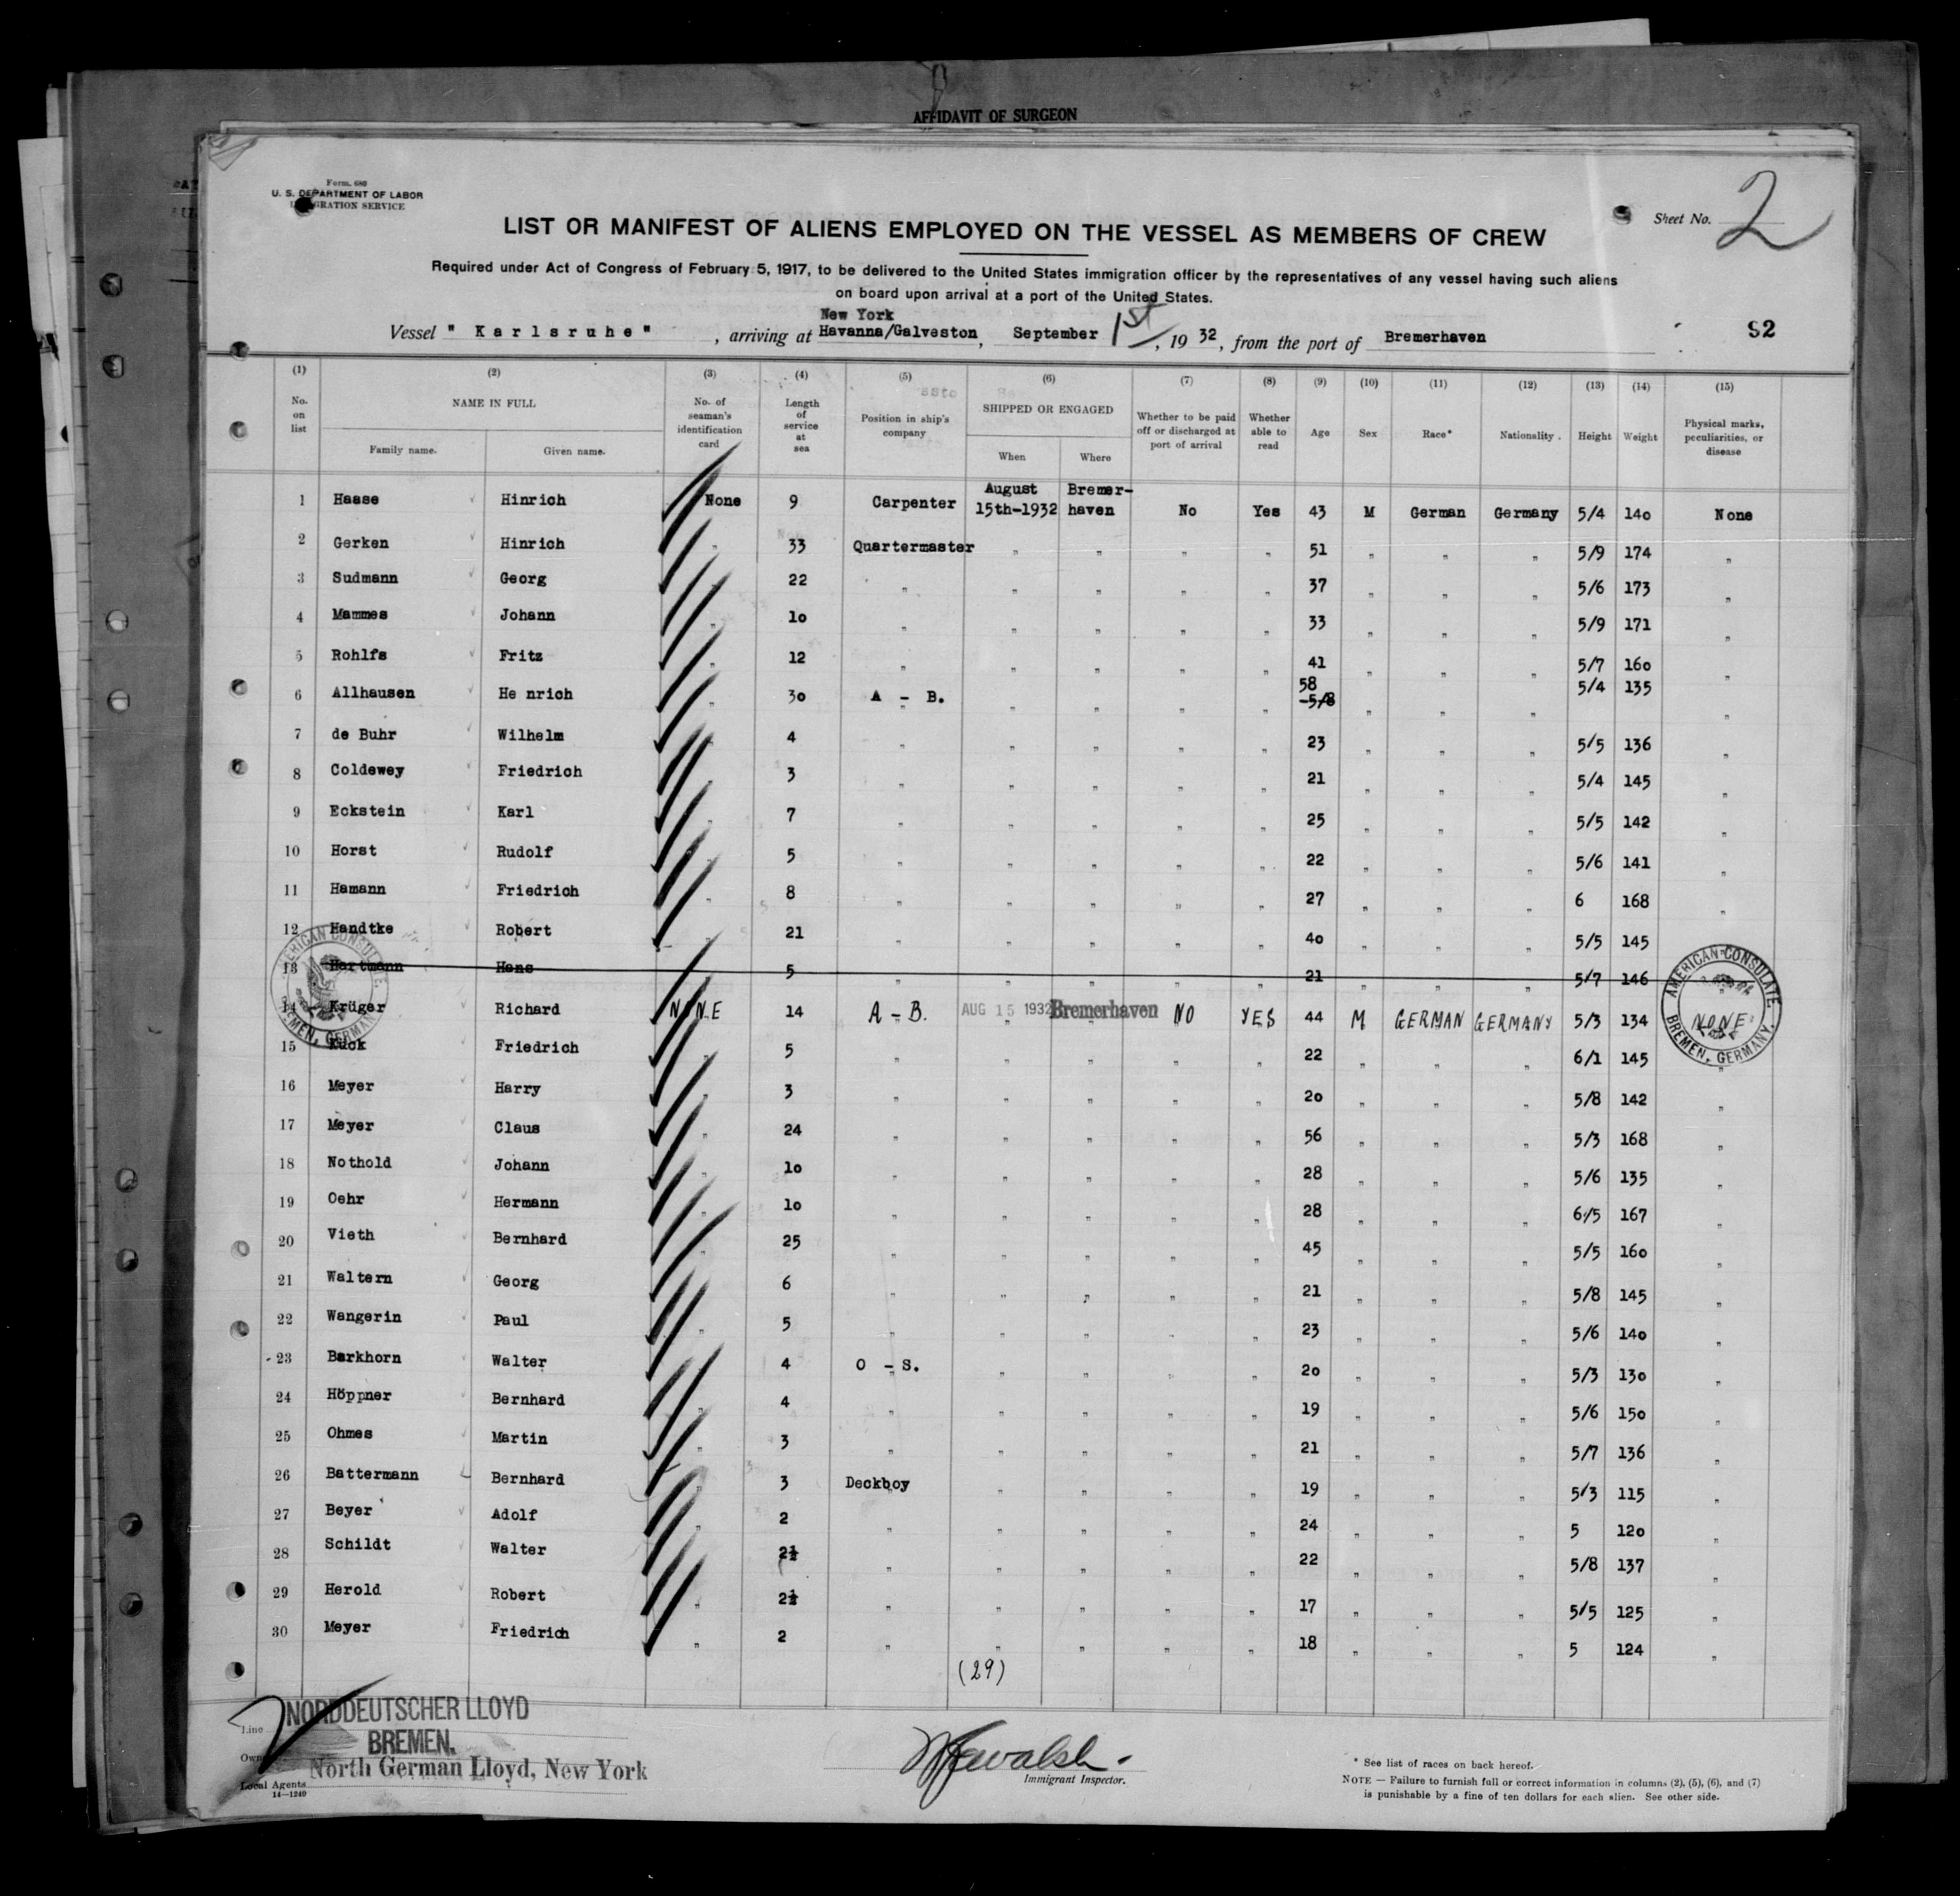 AFFIDAVIT OF SURGEON
Form 680
U. S. DEPARTMENT OF LABOR
IMMIGRATION SERVICE
Sheet No. 2
LIST OR MANIFEST OF ALIENS EMPLOYED ON THE VESSEL AS MEMBERS OF CREW
Required under Act of Congress of February 5, 1917, to be delivered to the United States immigration officer by the representatives of any vessel having such aliens
on board upon arrival at a port of the United States.
New York
Vessel " Karlsruhe " , arriving at Havanna/Galveston, September 1st, 19 32, from the port of Bremerhaven
S2
(1) (2) (3) (4) (5) (6) (7) (8) (9) (10) (11) (12) (13) (14) (15)
No. on list NAME IN FULL Family name. Given name. No. of seaman's identification card Length of service at sea Position in ship's company SHIPPED OR ENGAGED When Where Whether to be paid off or discharged at port of arrival Whether able to read Age Sex Race* Nationality. Height Weight Physical marks, peculiarities, or disease
1 Haase Hinrich None 9 Carpenter August 15th-1932 Bremer-haven No Yes 43 M German Germany 5/4 140 None
2 Gerken Hinrich " 33 Quartermaster " " " " 51 " " " 5/9 174 "
3 Sudmann Georg " 22 " " " " " 37 " " " 5/6 173 "
4 Mammes Johann " 10 " " " " " 33 " " " 5/9 171 "
5 Rohlfs Fritz " 12 " " " " " 41 " " " 5/7 160 "
6 Allhausen He nrich " 30 A - B. " " " " 58 -5/8 " " " 5/4 135 "
7 de Buhr Wilhelm " 4 " " " " " 23 " " " 5/5 136 "
8 Coldewey Friedrich " 3 " " " " " 21 " " " 5/4 145 "
9 Eckstein Karl " 7 " " " " " 25 " " " 5/5 142 "
10 Horst Rudolf " 5 " " " " " 22 " " " 5/6 141 "
11 Hamann Friedrich " 8 " " " " " 27 " " " 6 168 "
12 Handtke Robert " 21 " " " " " 40 " " " 5/5 145 "
13 Hartmann Hans 5 " " " " " 21 " " " 5/7 146 "
14 Krüger Richard NONE 14 A - B. AUG 15 1932 Bremerhaven NO YES 44 M GERMAN GERMANY 5/3 134 NONE
15 Kück Friedrich " 5 " " " " " 22 " " " 6/1 145 "
16 Meyer Harry " 3 " " " " " 20 " " " 5/8 142 "
17 Meyer Claus " 24 " " " " " 56 " " " 5/3 168 "
18 Nothold Johann " 10 " " " " " 28 " " " 5/6 135 "
19 Oehr Hermann " 10 " " " " " 28 " " " 6/5 167 "
20 Vieth Bernhard " 25 " " " " " 45 " " " 5/5 160 "
21 Waltern Georg " 6 " " " " " 21 " " " 5/8 145 "
22 Wangerin Paul " 5 " " " " " 23 " " " 5/6 140 "
23 Barkhorn Walter " 4 O - S. " " " " 20 " " " 5/3 130 "
24 Höppner Bernhard " 4 " " " " " 19 " " " 5/6 150 "
25 Ohmes Martin " 3 " " " " " 21 " " " 5/7 136 "
26 Battermann Bernhard " 3 Deckboy " " " " 19 " " " 5/3 115 "
27 Beyer Adolf " 2 " " " " " 24 " " " 5 120 "
28 Schildt Walter " 2½ " " " " " 22 " " " 5/8 137 "
29 Herold Robert " 2½ " " " " " 17 " " " 5/5 125 "
30 Meyer Friedrich " 2 " " " " " 18 " " " 5 124 "
AMERICAN CONSULATE BREMEN, GERMANY
AMERICAN CONSULATE BREMEN, GERMANY.
(29)
Line NORDDEUTSCHER LLOYD
BREMEN.
North German Lloyd, New York
Local Agents
14-1240
Immigrant Inspector.
* See list of races on back hereof.
NOTE — Failure to furnish full or correct information in columns (2), (5), (6), and (7)
is punishable by a fine of ten dollars for each alien. See other side.